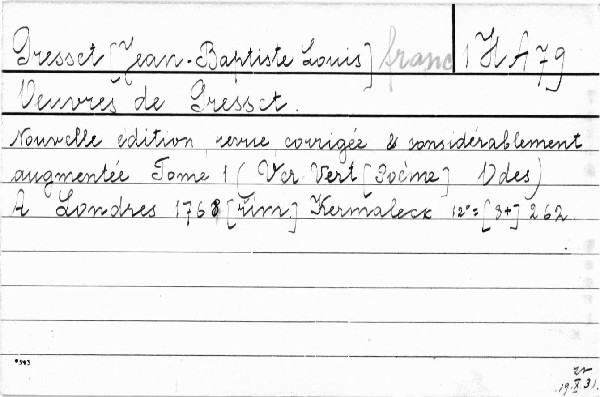 Gresset [Jean-Baptiste Louis] franc 1 H A 79
Oeuvres de Gresset.
Nouvelle édition, revue corrigée & considérablement
augmentée Tome 1 (Ver Vert [Poème] Odes)
A Londres 1768 [rim.] Kermaleck 12°= [8+] 262.
*543
19.X.31.